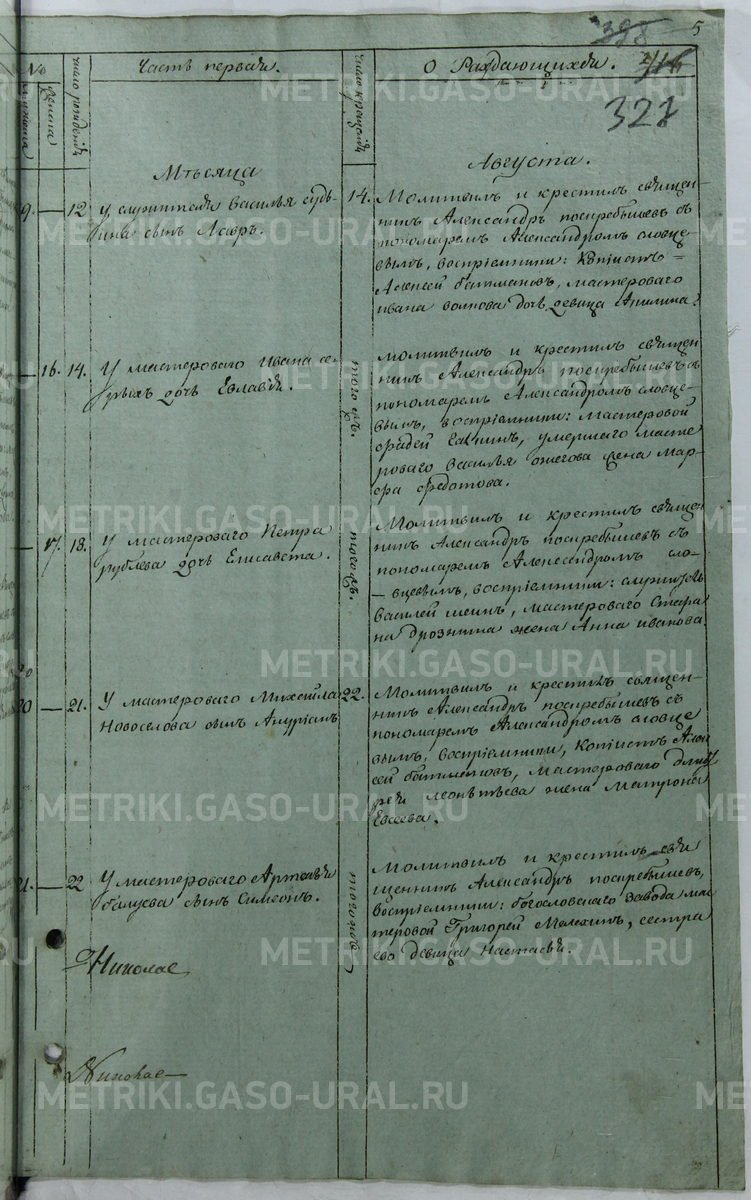 398 5
2/16
327
№
Мужеска
Женска
число рожденія
Часть первая.
число крещенія
О Раждающихся.
Мѣсяца
Августа.
19. — 12 У служителя Василья судь-
ина сынъ Лавръ.
14. Молитвилъ и крестилъ священ-
никъ Александръ поспребышевъ съ
пономаремъ Александромъ словце-
вымъ, воспріемники: Копіистъ
Алексей батмановъ, мастероваго
ивана волкова дочь девица Акилина.
— 16. 14. У мастероваго Ивана се-
рыхъ дочь Евлавія.
того жъ.
Молитвилъ и крестилъ священ-
никъ Александръ поспребышевъ съ
пономаремъ Александромъ словце-
вымъ, воспріемники: мастеровой
фадей умершаго масте-
роваго Василья ожегова жена Мар-
фа федотова.
— 17. 18. У мастероваго Петра
рублева дочь Елисавета.
того жъ.
Молитвилъ и крестилъ священ-
никъ Александръ поспребышевъ съ
пономаремъ Александромъ сло-
вцевымъ, воспріемники: служитель
василей мастероваго Стефа-
на дрознина жена Анна иванова
20 — 21. У мастероваго Михаила
Новоселова сынъ
22. Молитвилъ и крестилъ священ-
никъ Александръ поспребышевъ съ
пономаремъ Александромъ словце
вымъ, воспріемники, копіистъ Алек
сей батмановъ, мастероваго
леонтьева жена Матрона
Евсеева.
21. — 22 У мастероваго Артемія
балуева сынъ Симеонъ.
того жъ
Молитвилъ и крестилъ свя
щенникъ Александръ поспребышевъ,
воспріемники: богословскаго завода ма
теровой Григорей Мелехинъ, сестра
ево девица Настасья.
Николае
Николае
METRIKI.GASO-URAL.RU